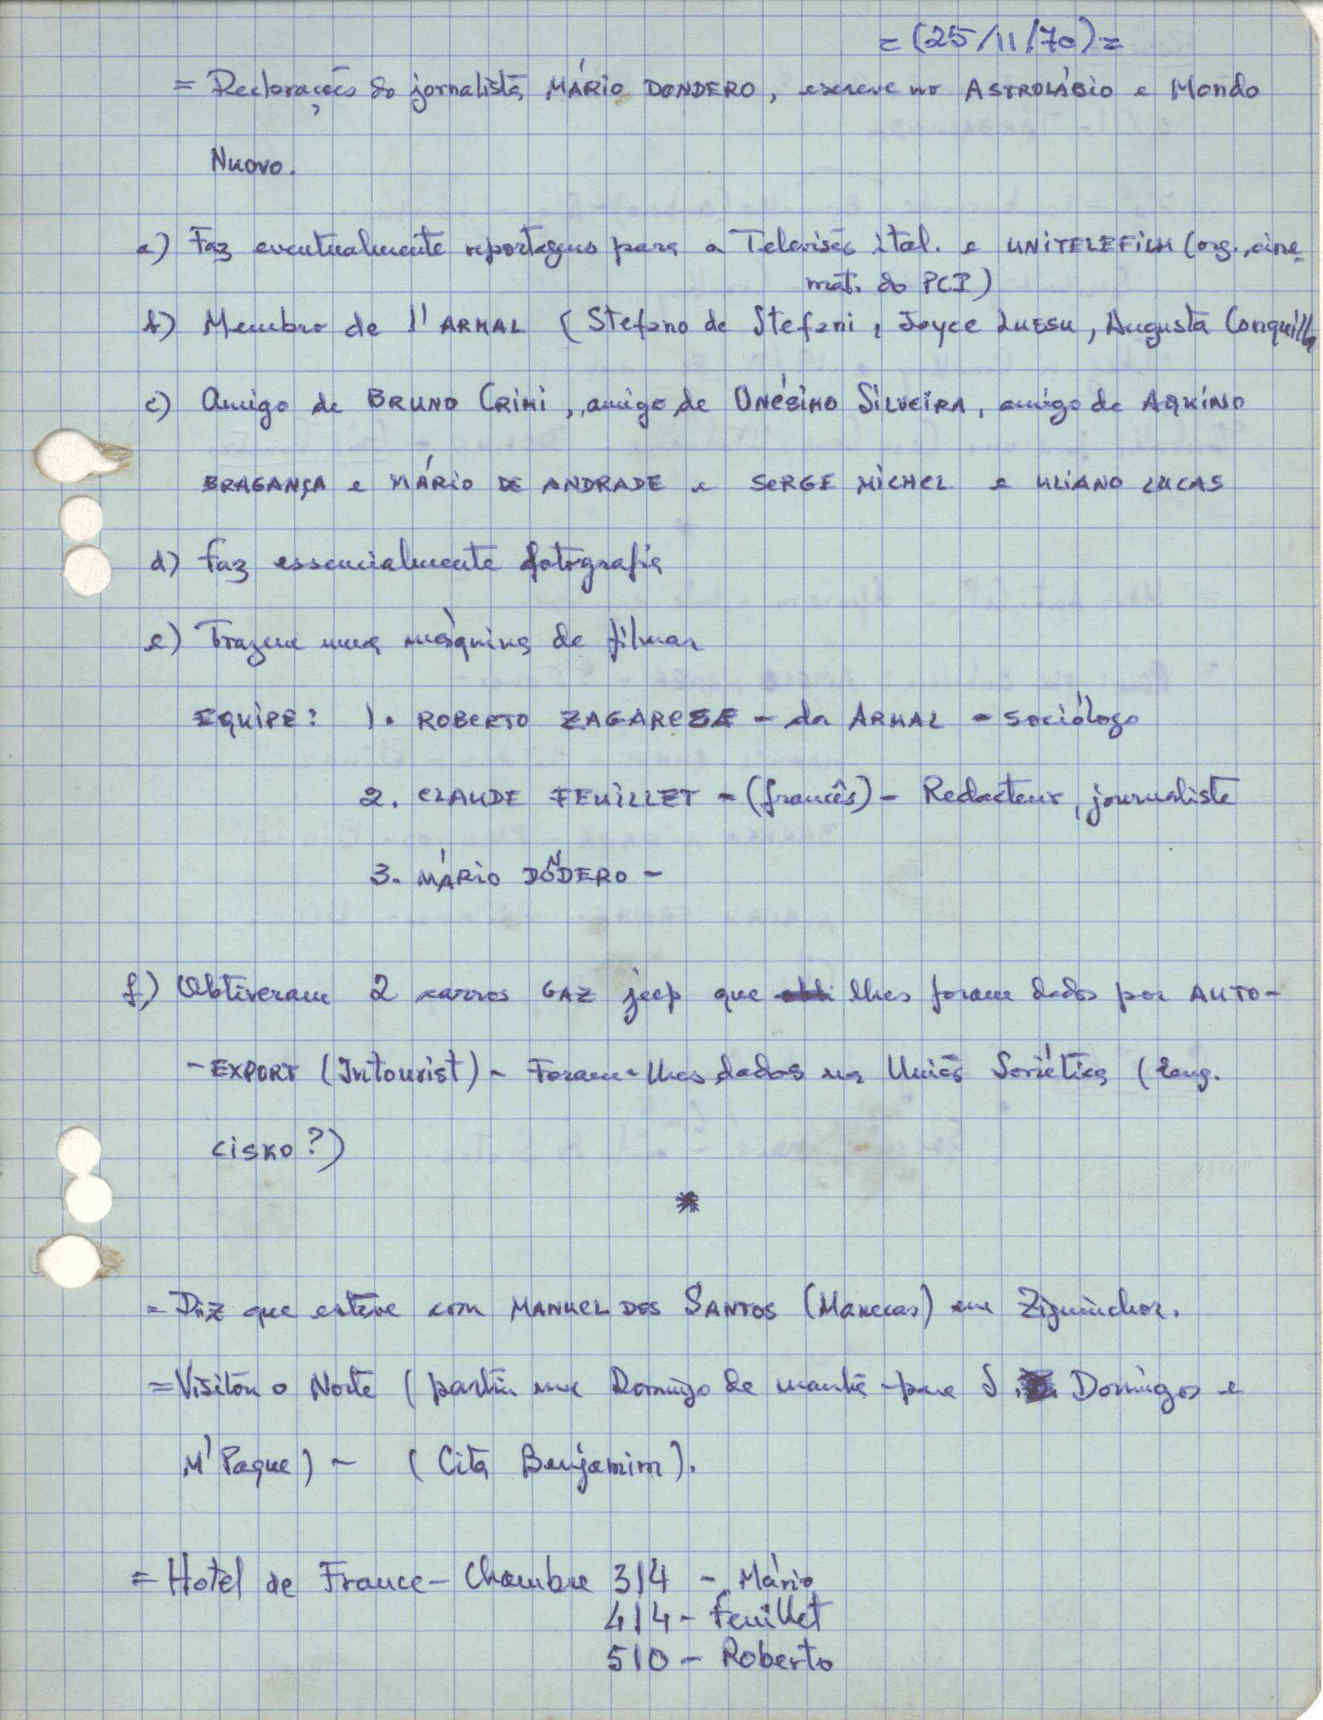 = (25/11/70) =
= Declarações do jornalista MÁRIO DONDERO, escreve no ASTROLÁBIO e Mondo
Nuovo.
a) Faz eventualmente reportagens para a Televisão ital. e UNITELEFILM (org. cine-
mat. do PCI)
b) Membro de l'ARMAL (Stefano de Stefani, Joyce LUESU, Augusta Conquilla
c) Amigo de BRUNO CRIMI, amigo de ONÉSIMO SILVEIRA, amigo de AQUINO
BRAGANÇA e MÁRIO DE ANDRADE e SERGE MICHEL e ULIANO LUCAS
d) Faz essencialmente fotografia
e) Trazem uma máquina de filmar
EQUIPE: 1. ROBERTO ZAGARESE - da ARMAL - sociólogo
2. CLAUDE FEUILLET - (francês) - Redacteur, journaliste
3. MÁRIO DÓNDERO -
f) Obtiveram 2 carros GAZ jeep que lhes foram dados por AUTO-
-EXPORT (Intourist) - Foram-lhes dados na União Soviética (
CISKO?)
*
= Diz que esteve com MANUEL DOS SANTOS (Manecas) em Ziguinchor.
= Visitou o Norte (partiu num Domingo de manhã para S. Domingos e
M'Paque) - (Cita Benjamim).
= Hotel de France - Chambre 314 - Mário
414 - Feuillet
510 - Roberto